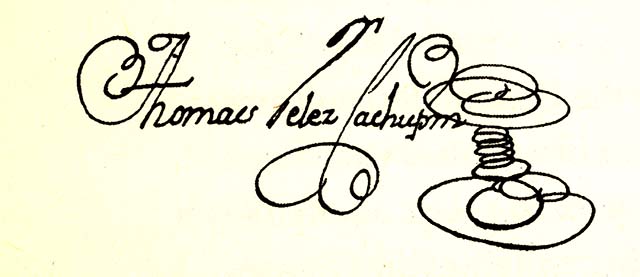 Thomas Velez Cachupin